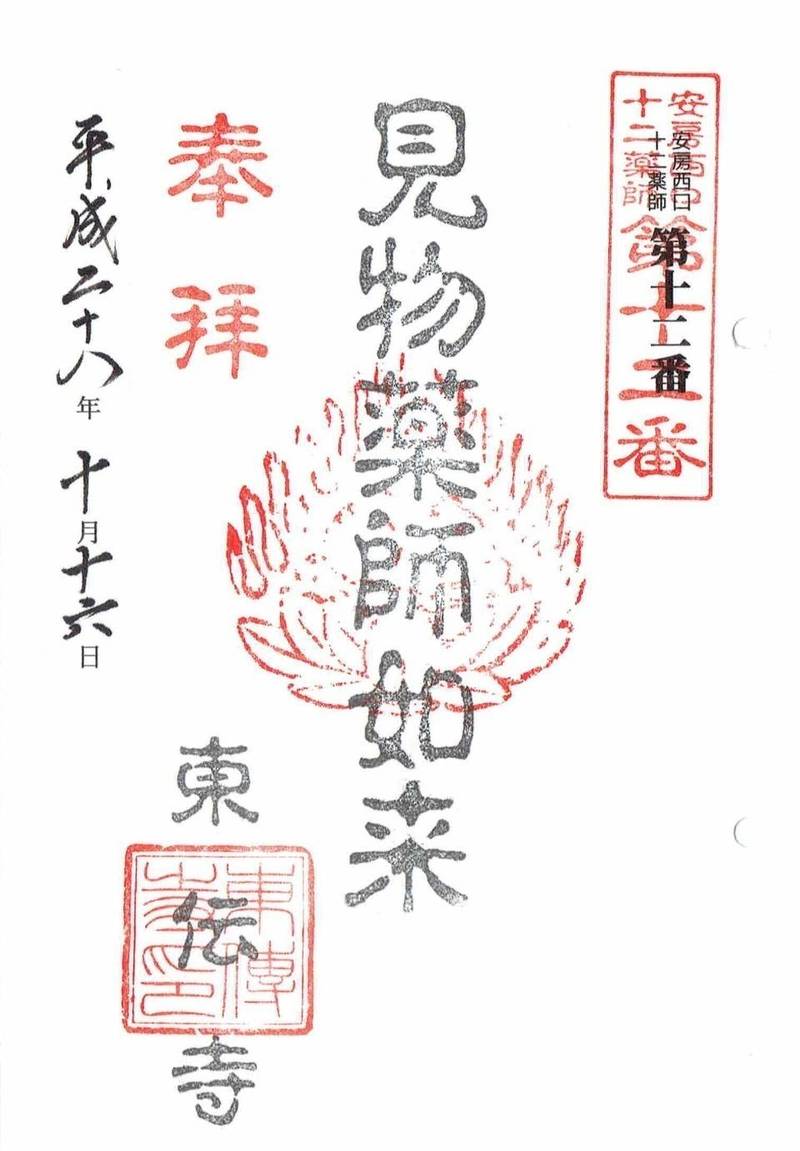 安房西口
十二薬師
第十二番
安房西口
十二薬師
第十二番
見物薬師如来
奉拝
東伝寺
東傳
寺印
平成二十八年十月十六日